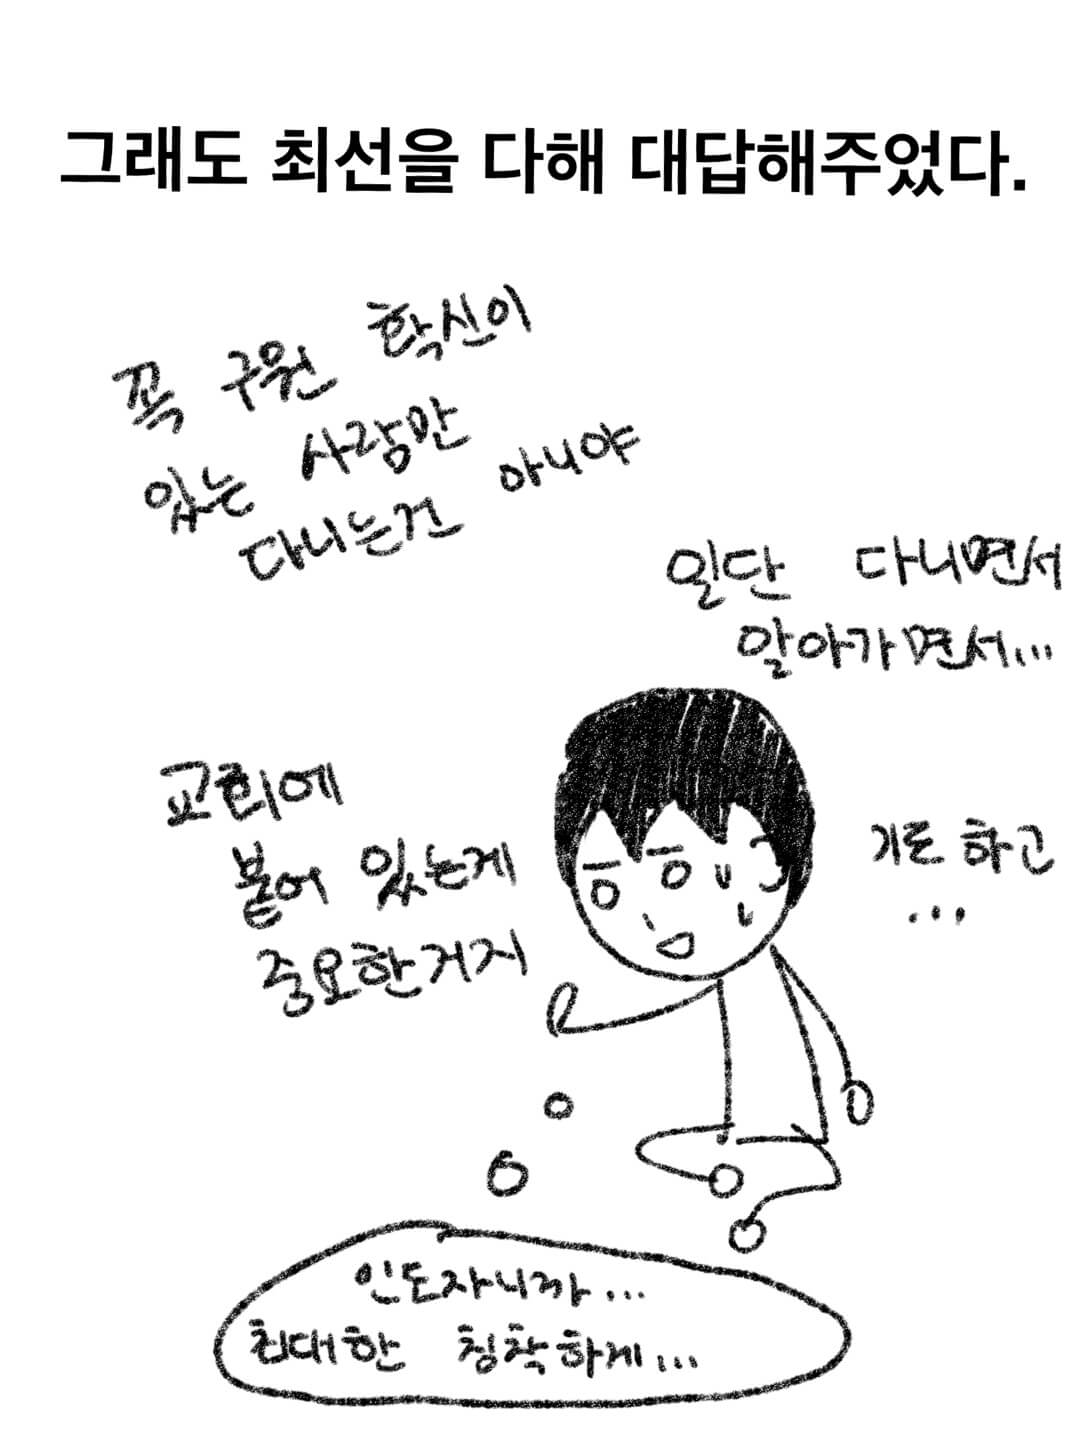 그래도 최선을 다해 대답해주었다.
꼭 구원 확신이
있는 사람만
다니는건 아니야
일단 다니면서
알아가면서...
교회에
붙어 있는게
중요한거지
기도하고
...
인도자니까...
최대한 침착하게...